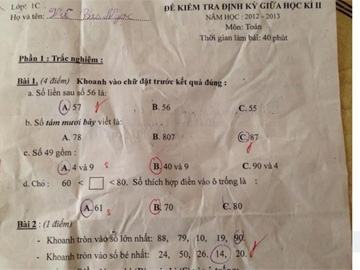 Lớp: 1C
Họ và tên:
ĐỀ KIỂM TRA ĐỊNH KỲ GIỮA HỌC KÌ II
NĂM HỌC : 2012 - 2013
Môn: Toán
Thời gian làm bài: 40 phút
Phần 1 : Trắc nghiệm :
Bài 1. (4 điểm) Khoanh vào chữ đặt trước kết quả đúng :
a. Số liền sau số 56 là:
A. 57 B. 56 C. 55
b. Số tám mươi bảy viết là:
A. 78 B. 807 C. 87
c. Số 49 gồm :
A. 4 và 9 s B. 40 và 9 C. 90 và 4
d. Cho : 60 < < 80. Số thích hợp điền vào ô trống là :
A. 61 s B. 70 C. 80
Bài 2 : (1 điểm)
- Khoanh tròn vào số lớn nhất: 88, 79, 10, 19, 90.
- Khoanh tròn vào số bé nhất: 24, 50, 26, 14, 20.